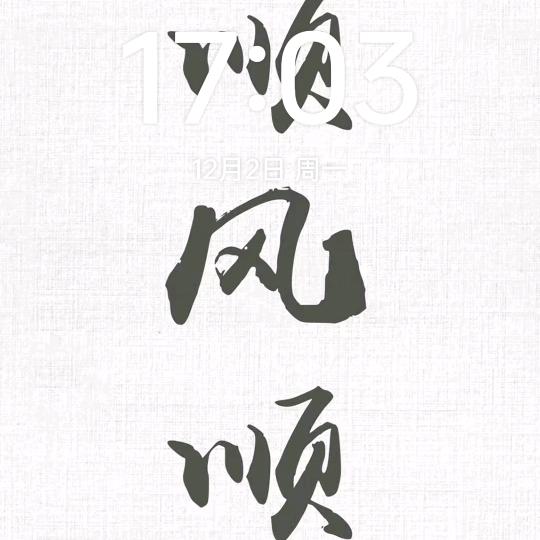 顺
17:03
12月2日 周一
风
顺